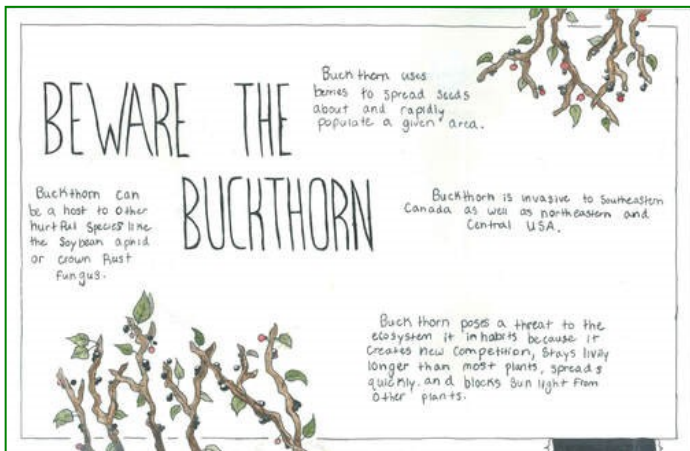 BEWARE THE
BUCKTHORN
Buckthorn uses
berries to spread seeds
about and rapidly
populate a given area.
Buckthorn can
be a host to other
hurtful species like
the Soybean aphid
or crown Rust
Fungus.
Buckthorn is invasive to Southeastern
Canada as well as northeastern and
Central USA.
Buckthorn poses a threat to the
ecosystem it inhabits because it
Creates new Competition, Stays livily
longer than most plants, spreads
quickly. and blocks Sun light from
Other plants.